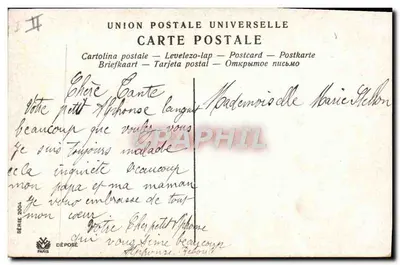 II
UNION POSTALE UNIVERSELLE
CARTE POSTALE
Cartolina postale — Levelezo-lap — Postcard — Postkarte
Briefkaart — Tarjeta postal — Открытое письмо
Chère Tante
Votre petit Alphonse
beaucoup que voulez vous
je suis toujours malade
cela inquiète beaucoup
mon papa et ma maman
Je vous embrasse de tout
mon cœur.
Votre Cher petit Alphonse
qui vous aime beaucoup
Alphonse
Mademoiselle Marie
CPAPHIL
SÉRIE 3004
PARIS
DÉPOSÉ